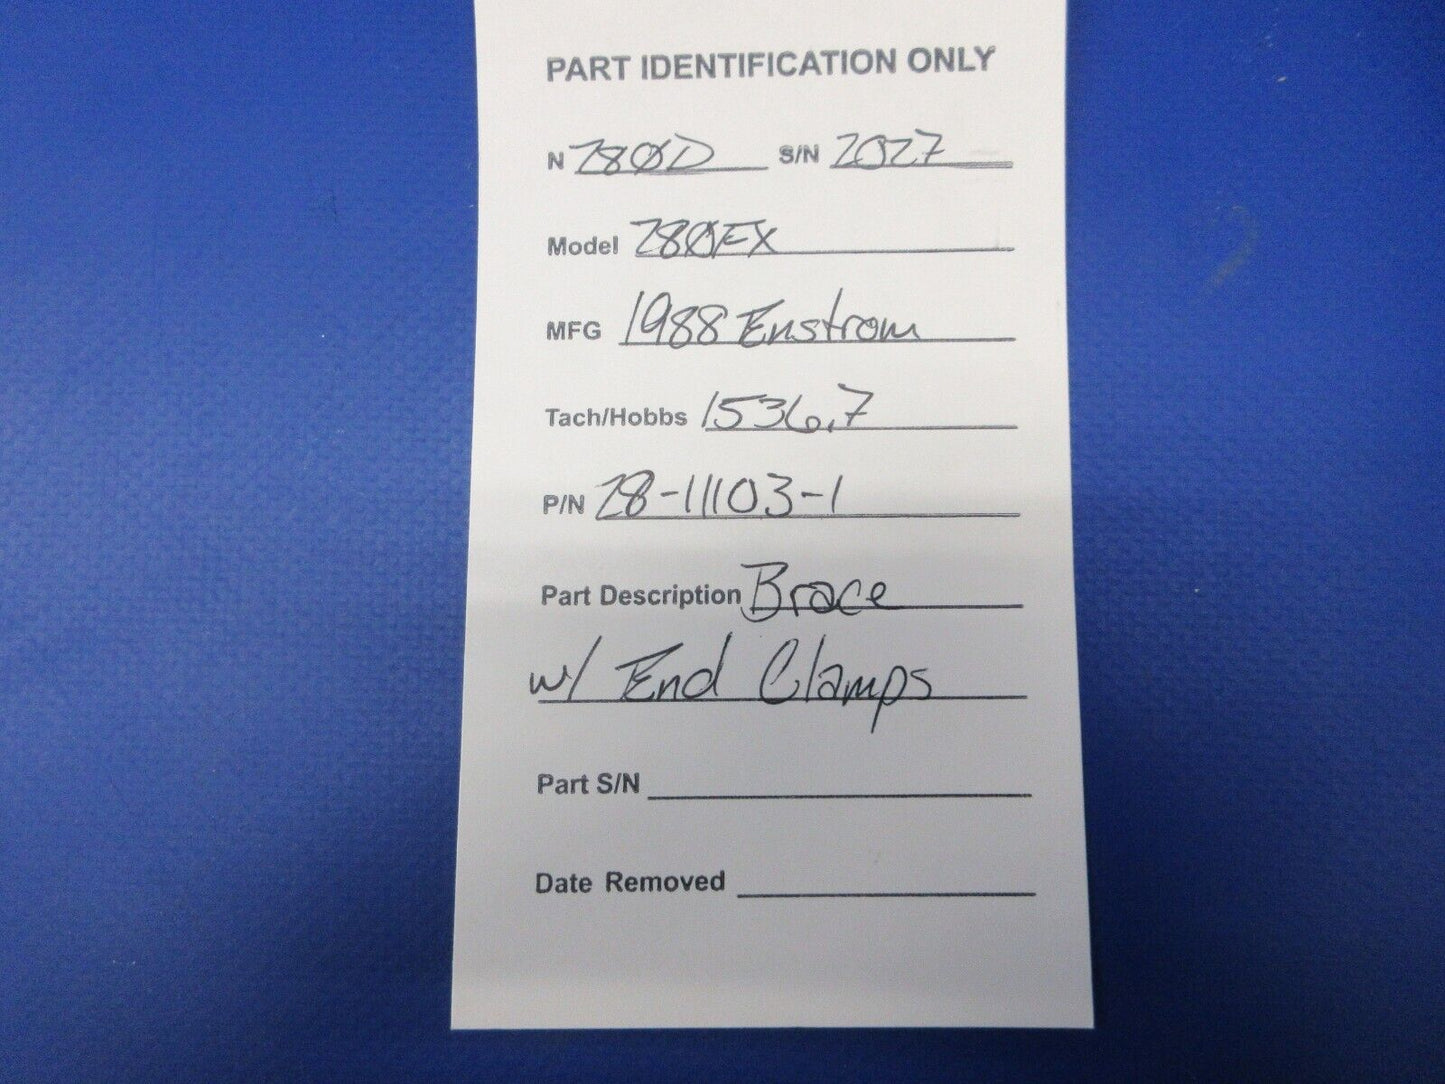 PART IDENTIFICATION ONLY
N 280D S/N 2027
Model 280FX
MFG 1988 Enstrom
Tach/Hobbs 1536.7
P/N 28-11103-1
Part Description Brace
w/ End Clamps
Part S/N
Date Removed